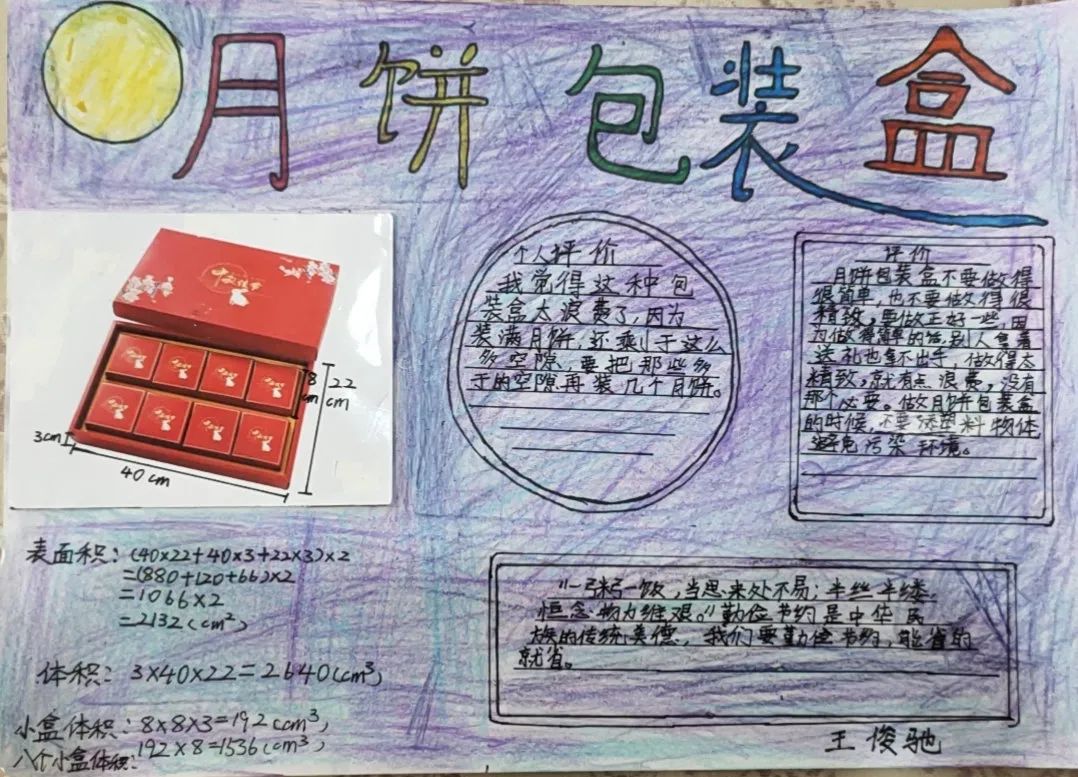 月饼包装盒
8cm
22cm
3cm
40cm
个人评价
我觉得这种包
装盒太浪费了,因为
装满月饼,还剩下这么
多空隙,要把那些多
于的空隙再装几个月饼。
评价
月饼包装盒不要做得
很简单,也不要做得很
精致,要做正好一些,因
为做得简单的话,别人拿着
送礼也拿不出手,做得太
精致,就有点浪费,没有
那个必要。做月饼包装盒
的时候,不要添塑料物体
避免污染环境。
表面积:(40×22+40×3+22×3)×2
=(880+120+66)×2
=1066×2
=2132(cm²)
体积:3×40×22=2640(cm³)
小盒体积:8×8×3=192(cm³)
八个小盒体积:192×8=1536(cm³)
"一粥一饭,当思来处不易;半丝半缕
恒念物力维艰。"勤俭节约是中华民
族的传统美德,我们要勤俭节约,能省的
就省。
王俊驰